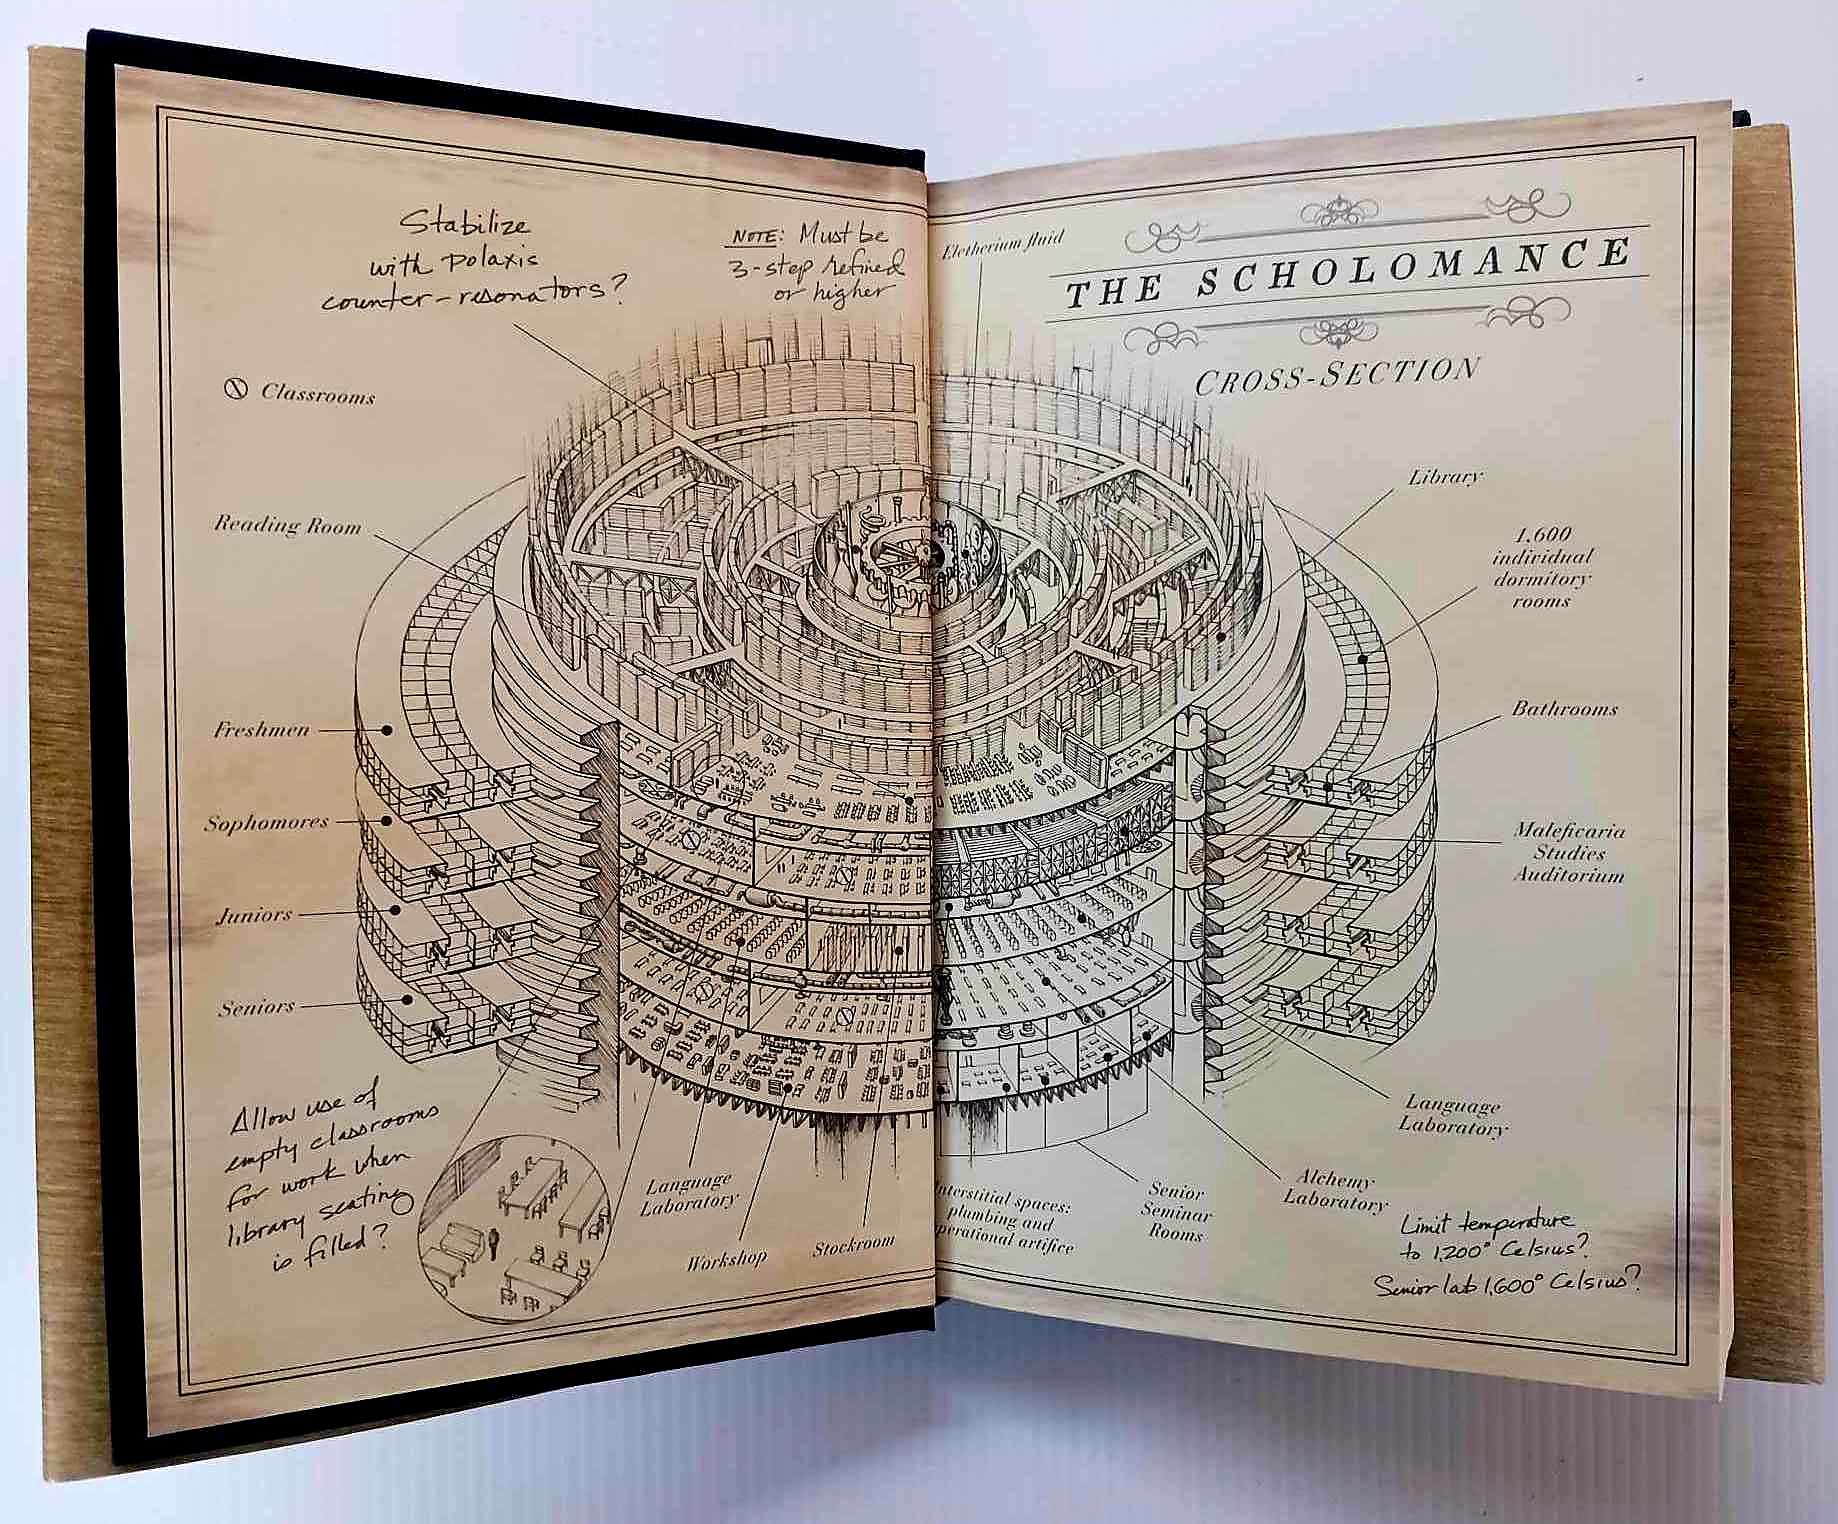 Stabilize
with polaxis
counter-resonators?
NOTE: Must be
3-step refined
or higher
Classrooms
Reading Room
Freshmen
Sophomores
Juniors
Seniors
Allow use of
empty classrooms
for work when
library seating
is filled?
Language
Laboratory
Workshop
Stockroom
Eletherium fluid
THE SCHOLOMANCE
CROSS-SECTION
Library
1,600
individual
dormitory
rooms
Bathrooms
Maleficaria
Studies
Auditorium
Language
Laboratory
Alchemy
Laboratory
Senior
Seminar
Rooms
nterstitial spaces:
plumbing and
perational artifice
Limit temperature
to 1,200° Celsius?
Senior lab 1,600° Celsius?